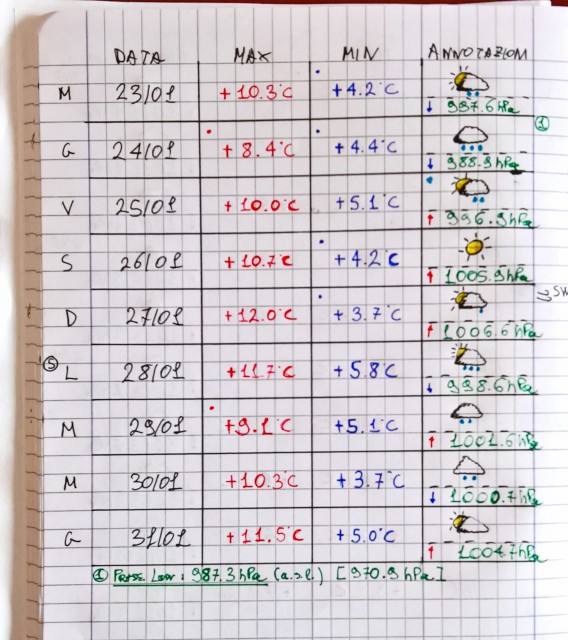 DATA MAX MIN ANNOTAZIONI
M 23/01 +10.3°C +4.2°C ↓ 997.6hPa
G 24/01 +8.4°C +4.4°C ↓ 988.9hPa ①
V 25/01 +10.0°C +5.1°C ↑ 996.9hPa
S 26/01 +10.7°C +4.2°C ↑ 1005.9hPa
D 27/01 +12.0°C +3.7°C ↑ 1006.6hPa
⑤ L 28/01 +11.7°C +5.8°C ↓ 998.6hPa
M 29/01 +9.1°C +5.1°C ↑ 1001.6hPa
M 30/01 +10.3°C +3.7°C ↓ 1000.7hPa
G 31/01 +11.5°C +5.0°C ↑ 1004.7hPa
① Press. Low: 987.3hPa (a.s.l.) [970.9hPa]